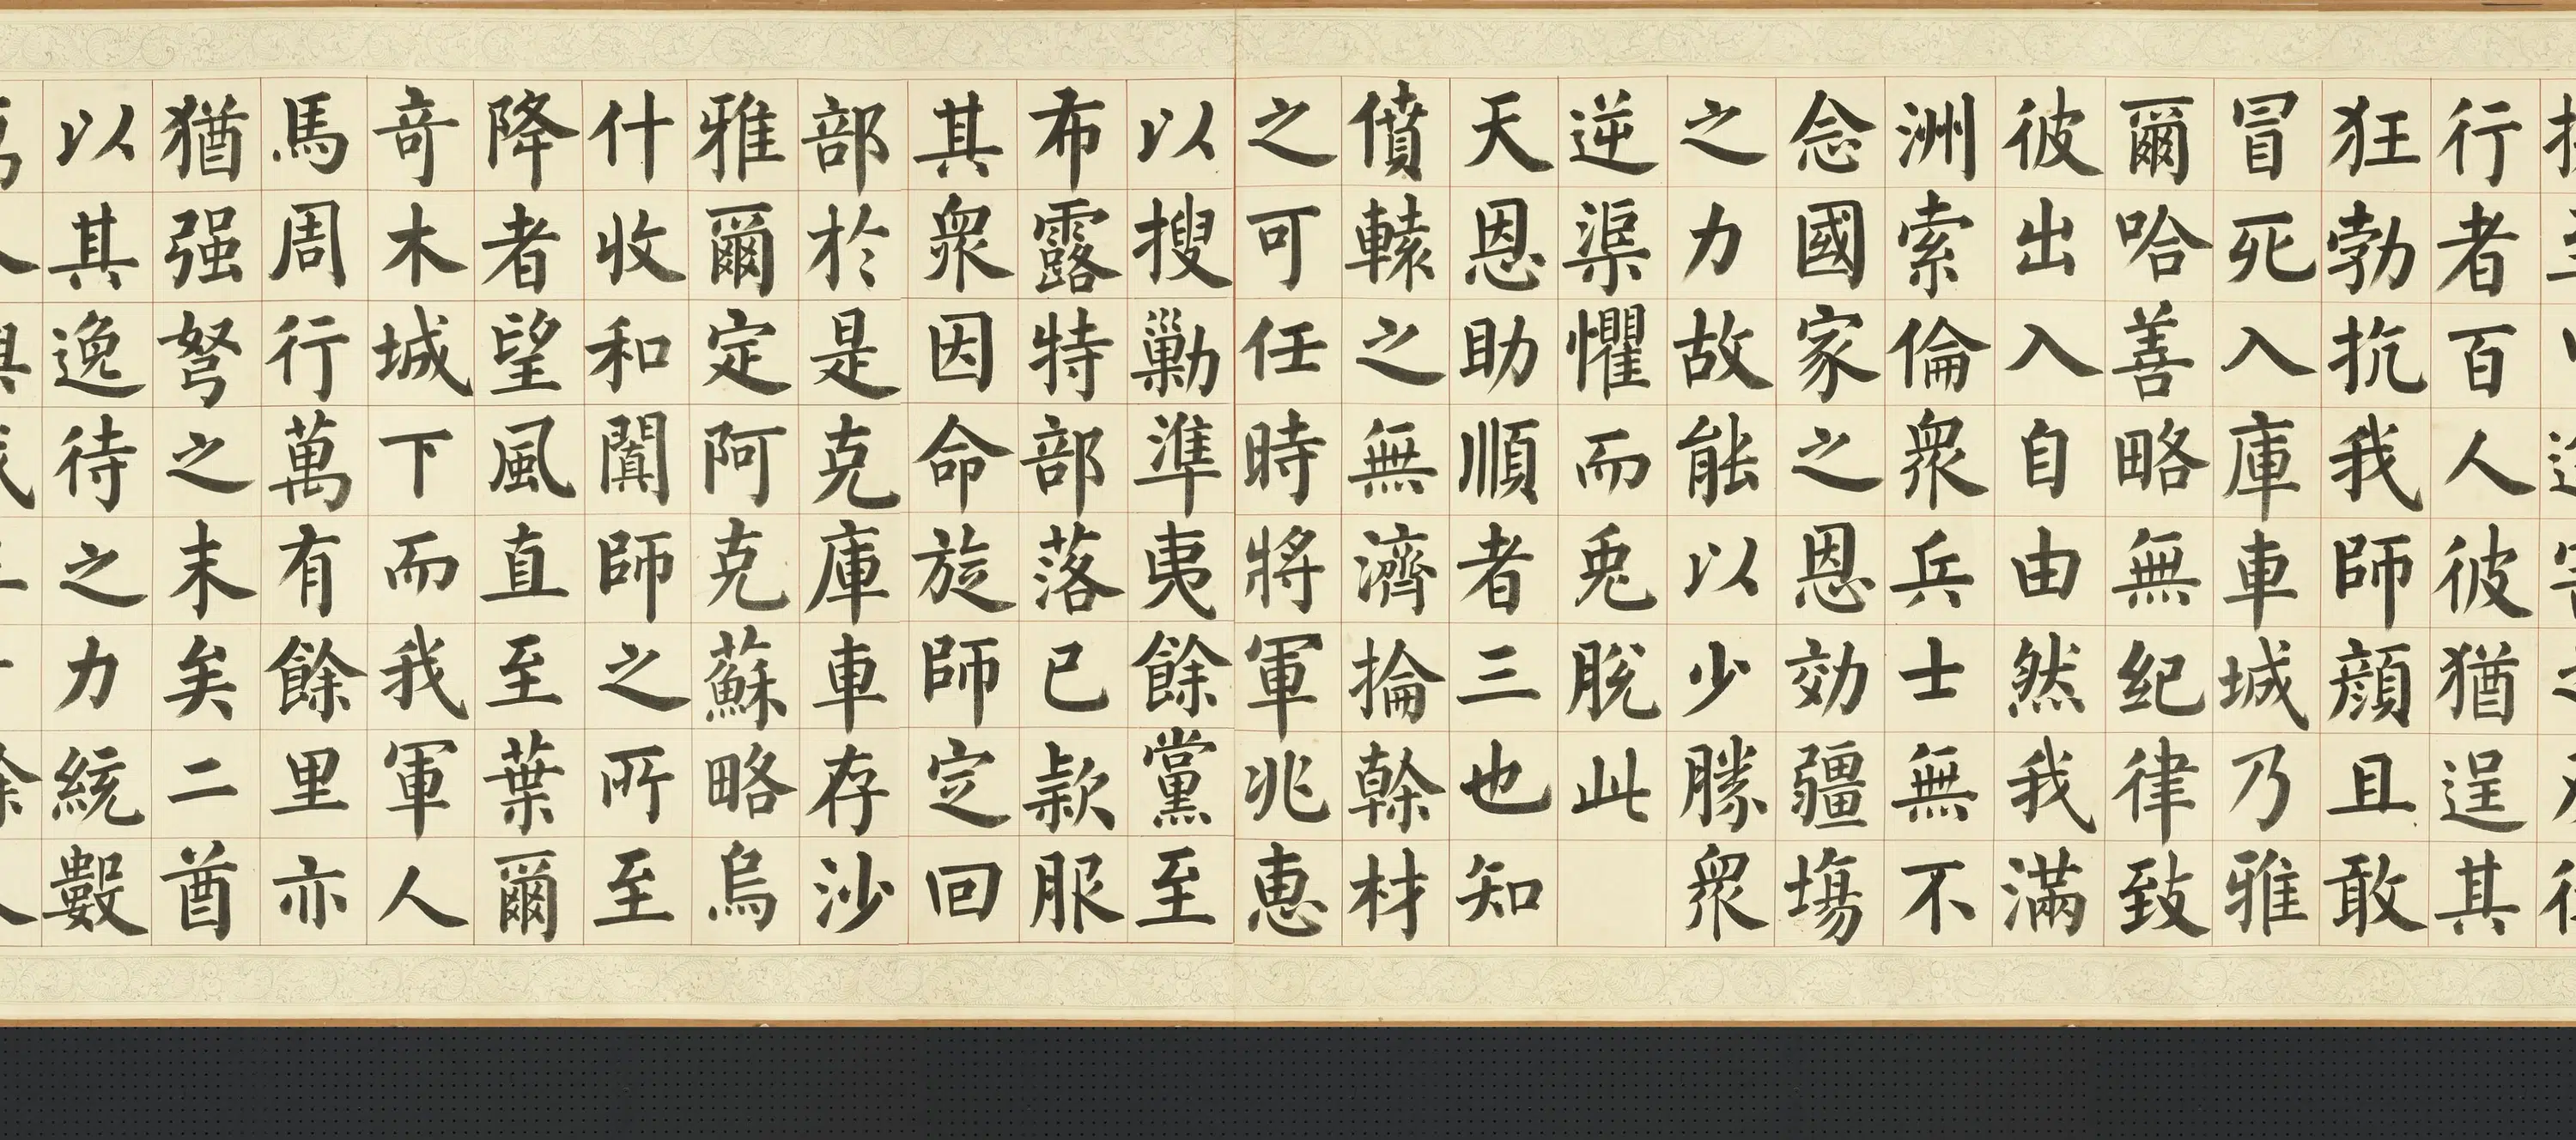 行者百人彼猶逞其
狂勃抗我師顔且敢
冒死入庫車城乃雅
爾哈善略無紀律致
彼出入自由然我滿
洲索倫衆兵士無不
念國家之恩効疆場
之力故能以少勝衆
逆渠懼而兎脫此
天恩助順者三也知
僨轅之無濟掄幹材
之可任時將軍兆惠
以搜勦準夷餘黨至
布露特部落已款服
其衆因命旋師定回
部於是克庫車存沙
雅爾定阿克蘇略烏
什收和闐師之所至
降者望風直至葉爾
奇木城下而我軍人
馬周行萬有餘里亦
猶强弩之末矣二酋
以其逸待之力統數